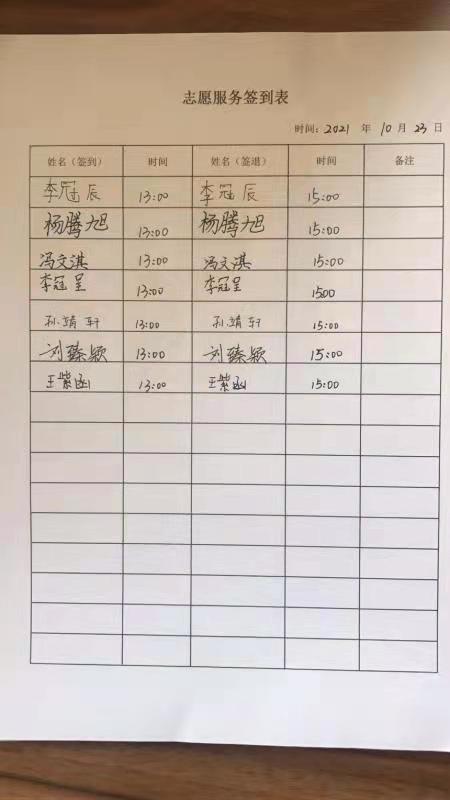 志愿服务签到表
时间：2021 年 10 月 23 日
姓名（签到） 时间 姓名（签退） 时间 备注
李冠辰 13:00 李冠辰 15:00
杨腾旭 13:00 杨腾旭 15:00
冯文淇 13:00 冯文淇 15:00
李冠呈 13:00 李冠呈 1500
孙靖轩 13:00 孙靖轩 15:00
刘臻颖 13:00 刘臻颖 15:00
王紫函 13:00 王紫函 15:00